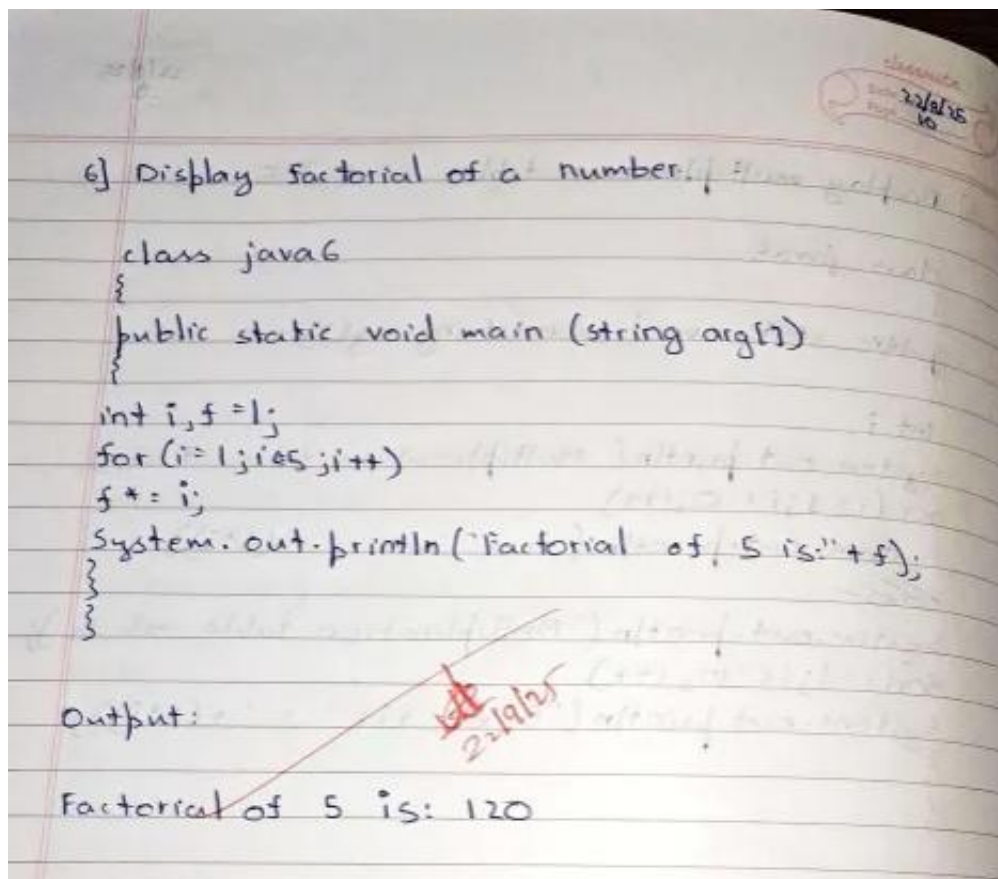 classmate
Date 22/9/25
Page 10
6] Display factorial of a number.
class java6
{
public static void main (string arg[])
{
int i, f =1;
for (i=1; i<=5; i++)
f *= i;
System.out.println ("Factorial of 5 is:" + f);
}
}
22/9/25
Output:
Factorial of 5 is: 120